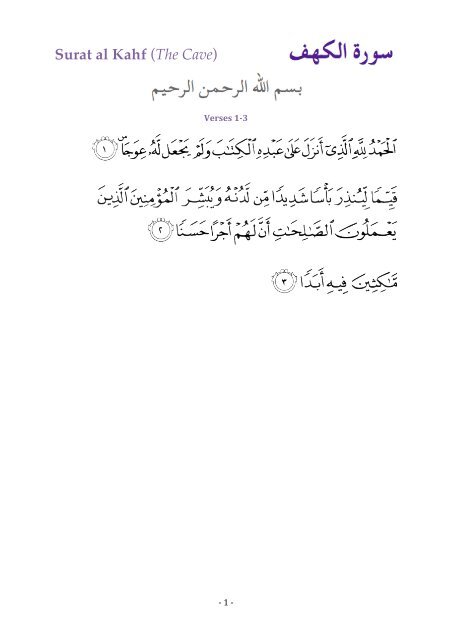 Surat al Kahf (The Cave) سورة الكهف
بسم الله الرحمن الرحيم
Verses 1-3
ٱلْحَمْدُ لِلَّهِ ٱلَّذِىٓ أَنزَلَ عَلَىٰ عَبْدِهِ ٱلْكِتَٰبَ وَلَمْ يَجْعَل لَّهُۥ عِوَجَاۜ ١
قَيِّمًا لِّيُنذِرَ بَأْسًا شَدِيدًا مِّن لَّدُنْهُ وَيُبَشِّرَ ٱلْمُؤْمِنِينَ ٱلَّذِينَ
يَعْمَلُونَ ٱلصَّٰلِحَٰتِ أَنَّ لَهُمْ أَجْرًا حَسَنًا ٢
مَّٰكِثِينَ فِيهِ أَبَدًا ٣
- 1 -